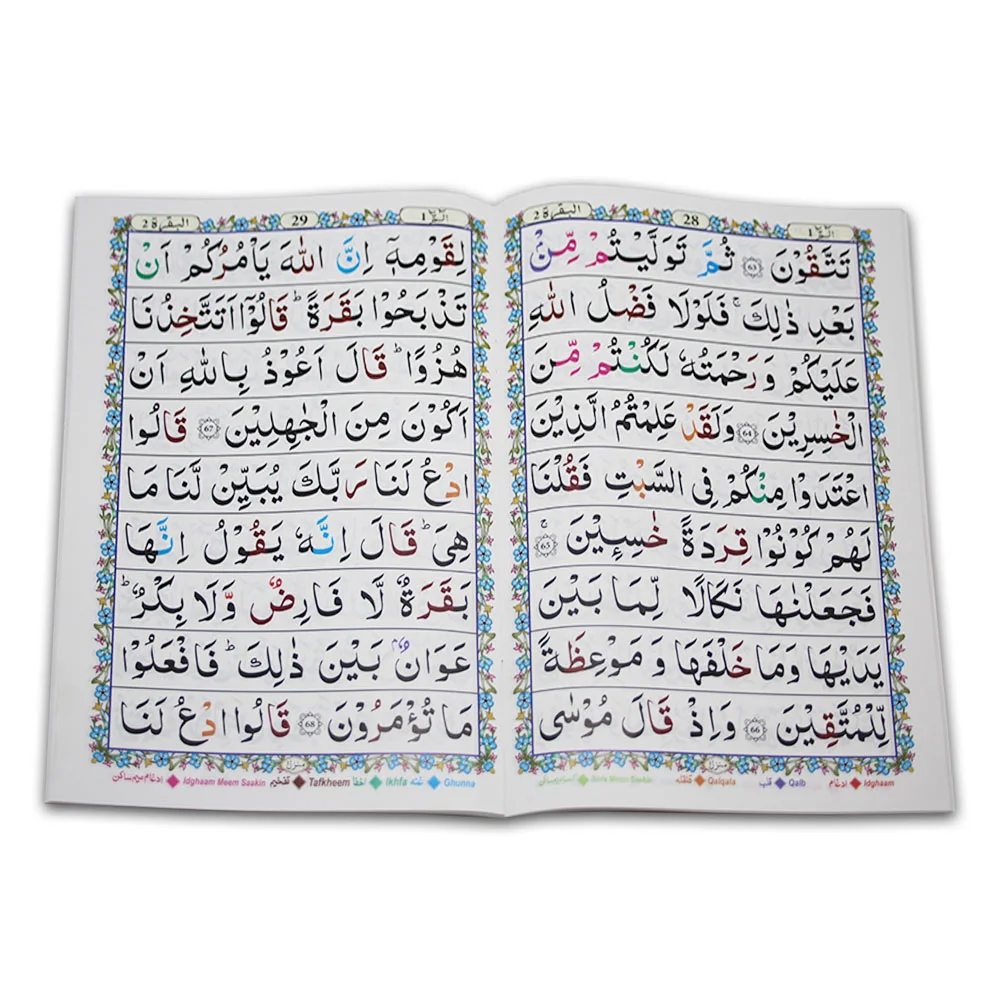 الٓمّٓ ١
28
البقرة 2
تَتَّقُوْنَ ﴿63﴾ ثُمَّ تَوَلَّيْتُمْ مِّنْۢ
بَعْدِ ذٰلِكَ ۚ فَلَوْلَا فَضْلُ اللّٰهِ
عَلَيْكُمْ وَرَحْمَتُهٗ لَكُنْتُمْ مِّنَ
الْخٰسِرِيْنَ ﴿64﴾ وَلَقَدْ عَلِمْتُمُ الَّذِيْنَ
اعْتَدَوْا مِنْكُمْ فِى السَّبْتِ فَقُلْنَا
لَهُمْ كُوْنُوْا قِرَدَةً خٰسِـِٕيْنَ ﴿65﴾ ۚ
فَجَعَلْنٰهَا نَكَالًا لِّمَا بَيْنَ
يَدَيْهَا وَمَا خَلْفَهَا وَمَوْعِظَةً
لِّلْمُتَّقِيْنَ ﴿66﴾ وَاِذْ قَالَ مُوْسٰى
منزل ١
Idghaam ادغام
Qalb قلب
Qalqala قلقله
Ikhfa Meem Saakin
الٓمّٓ ١
29
البقرة 2
لِقَوْمِهٖٓ اِنَّ اللّٰهَ يَاْمُرُكُمْ اَنْ
تَذْبَحُوْا بَقَرَةً ؕ قَالُوْٓا اَتَتَّخِذُنَا
هُزُوًا ؕ قَالَ اَعُوْذُ بِاللّٰهِ اَنْ
اَكُوْنَ مِنَ الْجٰهِلِيْنَ ﴿67﴾ قَالُوا
ادْعُ لَنَا رَبَّكَ يُبَيِّنْ لَّنَا مَا
هِىَ ؕ قَالَ اِنَّهٗ يَقُوْلُ اِنَّهَا
بَقَرَةٌ لَّا فَارِضٌ وَّلَا بِكْرٌ ؕ
عَوَانٌۢ بَيْنَ ذٰلِكَ ؕ فَافْعَلُوْا
مَا تُؤْمَرُوْنَ ﴿68﴾ قَالُوا ادْعُ لَنَا
منزل ١
Ghunna غنه
Ikhfa اخفا
Tafkheem تفخيم
Idghaam Meem Saakin ادغام ميم ساكن